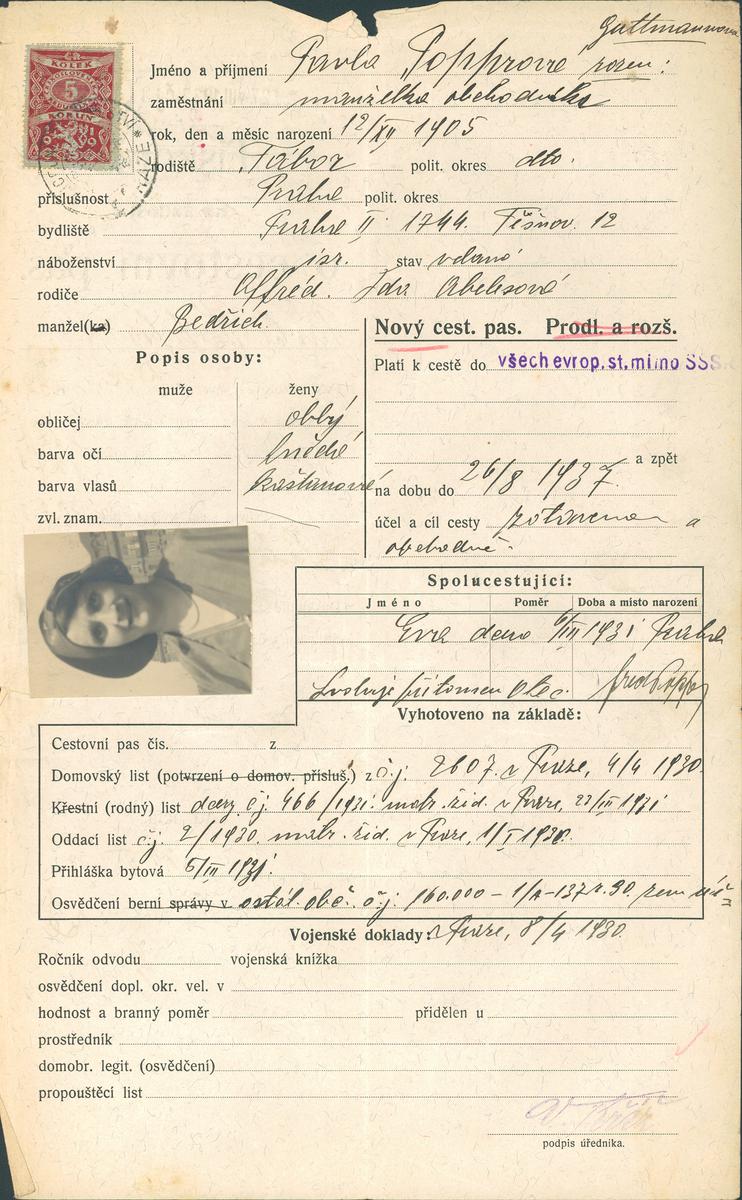 Guttmannová
Jméno a příjmení Pavla Popprová rozen:
zaměstnání manželka obchodníka
rok, den a měsíc narození 12/XII 1905
rodiště Tábor polit. okres dto.
příslušnost Praha polit. okres
bydliště Praha II. 1744. Těšnov. 12
náboženství isr. stav vdaná
rodiče Alfréd. Ida Abelesová
manžel(ka) Bedřich.
Nový cest. pas. Prodl. a rozš.
Platí k cestě do všech evrop. st. mimo SSS.
Popis osoby:
muže ženy
obličej oblý
barva očí hnědé
barva vlasů kaštanové
zvl. znam.
a zpět
na dobu do 26/8 1937.
účel a cíl cesty zotavena a
obchodně.
KOLEK
5
KORUN
1919
Spolucestující:
Jméno Poměr Doba a místo narození
Eva dcera 6/III 1931 Praha
Svoluje přítomen otec.
Vyhotoveno na základě:
Cestovní pas čís. z
Domovský list (potvrzení o domov. přísluš.) z č.j. 2607. v Praze, 4/4 1930.
Křestní (rodný) list dcery čj. 466/1931. matr. žid. v Praze, 23/III 1931
Oddací list čj. 2/1930. matr. žid. v Praze, 1/I 1930.
Přihláška bytová 5/III 1931.
Osvědčení berní správy v ostát. obč. čj. 160.000 – 1/A-137 r. 30. zem.
v Praze, 8/4 1930.
Vojenské doklady:
Ročník odvodu vojenská knížka
osvědčení dopl. okr. vel. v
hodnost a branný poměr přidělen u
prostředník
domobr. legit. (osvědčení)
propouštěcí list
podpis úředníka.